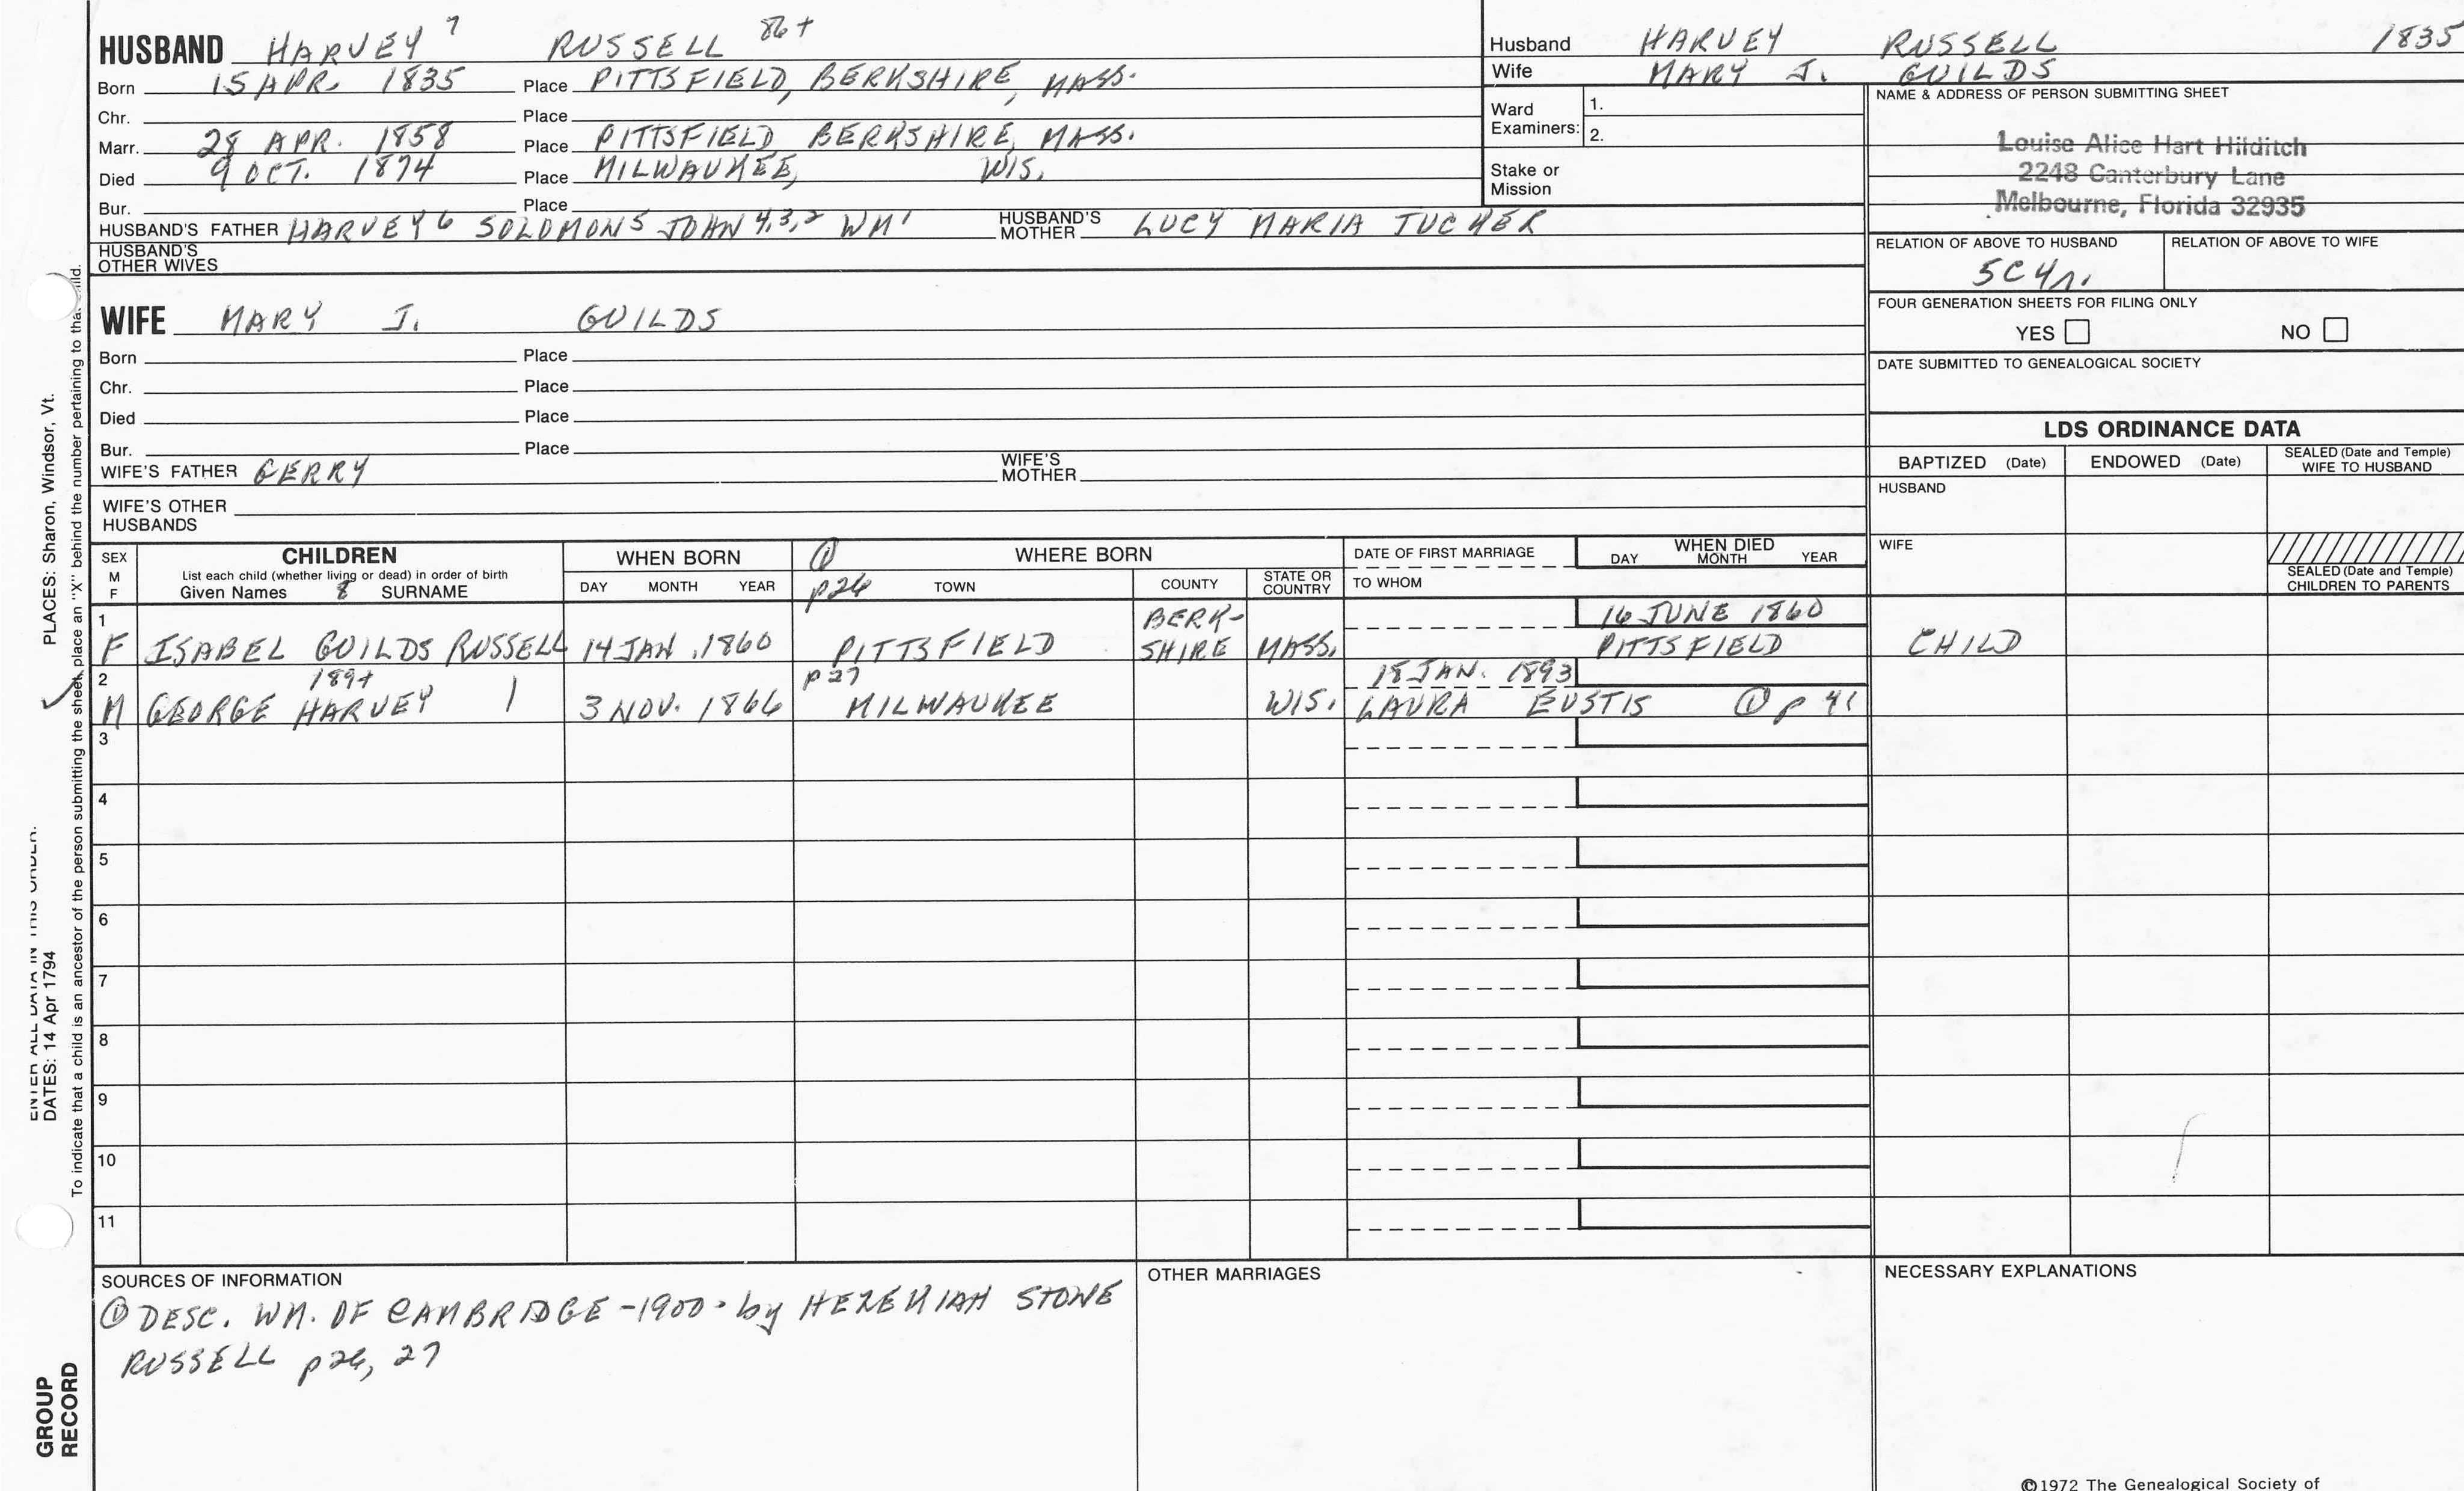 HUSBAND HARVEY 7 RUSSELL 86+
Born 15 APR. 1835 Place PITTSFIELD, BERKSHIRE, MASS.
Chr. Place
Marr. 28 APR. 1858 Place PITTSFIELD, BERKSHIRE, MASS.
Died 9 OCT. 1874 Place MILWAUKEE, WIS.
Bur. Place
HUSBAND'S FATHER HARVEY 6 SOLOMON 5 JOHN 4,3,2 WM 1 HUSBAND'S MOTHER LUCY MARIA TUCKER
HUSBAND'S OTHER WIVES
WIFE MARY J. GUILDS
Born Place
Chr. Place
Died Place
Bur. Place
WIFE'S FATHER GERRY WIFE'S MOTHER
WIFE'S OTHER HUSBANDS
Husband HARVEY RUSSELL 1835
Wife MARY J. GUILDS
Ward Examiners: 1.
2.
Stake or Mission
NAME & ADDRESS OF PERSON SUBMITTING SHEET
Louise Alice Hart Hilditch
2248 Canterbury Lane
Melbourne, Florida 32935
RELATION OF ABOVE TO HUSBAND RELATION OF ABOVE TO WIFE
5C4r.
FOUR GENERATION SHEETS FOR FILING ONLY
YES NO
DATE SUBMITTED TO GENEALOGICAL SOCIETY
LDS ORDINANCE DATA
BAPTIZED (Date) ENDOWED (Date) SEALED (Date and Temple) WIFE TO HUSBAND
HUSBAND
WIFE
SEALED (Date and Temple) CHILDREN TO PARENTS
SEX M F CHILDREN WHEN BORN ① WHERE BORN DATE OF FIRST MARRIAGE WHEN DIED
List each child (whether living or dead) in order of birth
Given Names 8 SURNAME DAY MONTH YEAR p26 TOWN COUNTY STATE OR COUNTRY TO WHOM DAY MONTH YEAR
1 BERK- 16 JUNE 1860
F ISABEL GUILDS RUSSELL 14 JAN. 1860 PITTSFIELD SHIRE MASS. PITTSFIELD CHILD
2 189+ p27 18 JAN. 1893
M GEORGE HARVEY 1 3 NOV. 1866 MILWAUKEE WIS. LAURA EUSTIS ① p 41
3
4
5
6
7
8
9
10
11
SOURCES OF INFORMATION OTHER MARRIAGES NECESSARY EXPLANATIONS
① DESC. WM. OF CAMBRIDGE -1900- by HEZEKIAH STONE
RUSSELL p26, 27
©1972 The Genealogical Society of
PLACES: Sharon, Windsor, Vt.
DATES: 14 Apr 1794
To indicate that a child is an ancestor of the person submitting the sheet, place an "X" behind the number pertaining to that child.
GROUP
RECORD